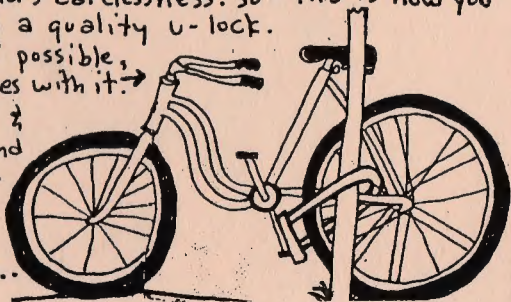 carelessness. so This is how you
a quality u-lock.
possible,
es with it.→
&
nd
...